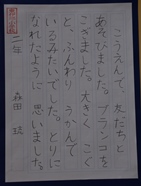 こうえんで、友だちと
あそびました。ブランコを
こぎました。大きく こぐ
と、ふんわり うかんで
いるみたいでした。とりに
なれたように 思いました。
二年 森田